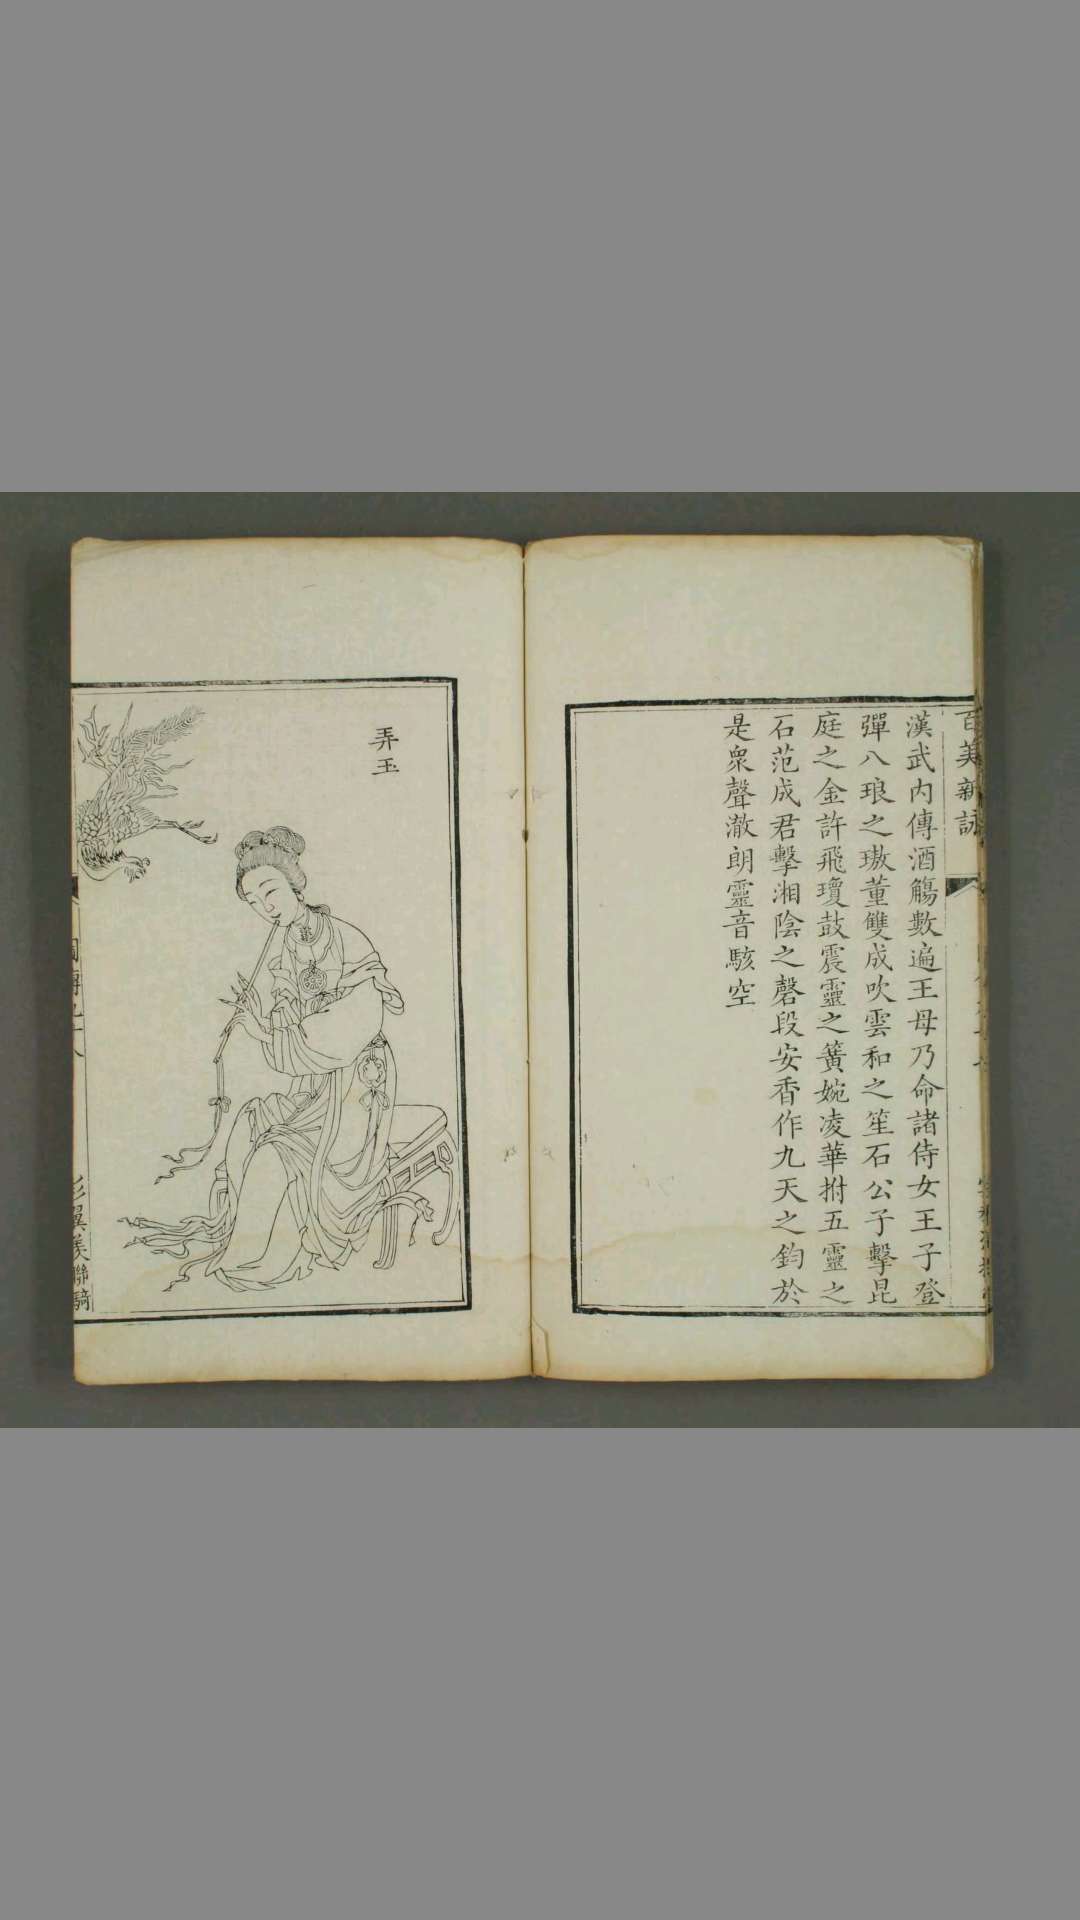 百美新詠
漢武內傳酒觴數遍王母乃命諸侍女王子登
彈八琅之璈董雙成吹雲和之笙石公子擊昆
庭之金許飛瓊鼓震靈之簧婉凌華拊五靈之
石范成君擊湘陰之磬段安香作九天之鈞於
是衆聲澈朗靈音駭空
弄玉
圖傳九十八
彩翼美聯騎